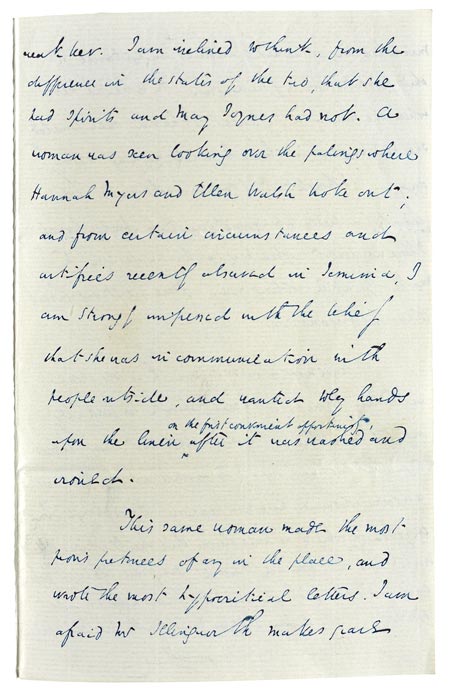 weak her. I am inclined to think, from the
difference in the states of the two, that she
had spirits and May Joynes had not. A
woman was seen looking over the palings where
Hannah Myers and Ellen Walsh broke out;
and from certain circumstances and
artifices recently observed in Jemima, I
am strongly impressed with the belief
that she was in communication with
people outside, and wanted to lay hands
on the first convenient opportunity,
upon the linen after it was washed and
ironed.
This same woman made the most
pious pretences of any in the place, and
wrote the most hypocritical letters. I am
afraid Mr Illingworth makes